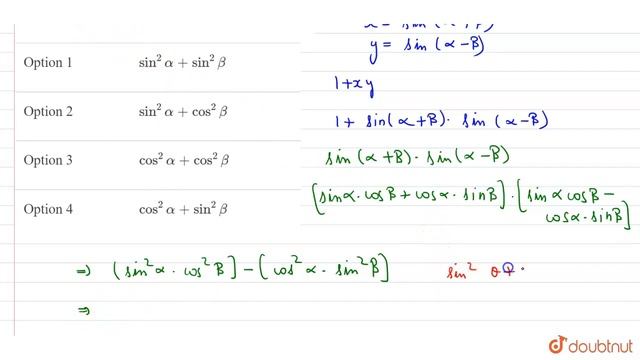 Option 1 sin² α + sin² β
Option 2 sin² α + cos² β
Option 3 cos² α + cos² β
Option 4 cos² α + sin² β
y = sin (α - β)
1 + x y
1 + sin(α + β) · sin (α - β)
sin (α + β) · sin (α - β)
[sin α · cos β + cos α · sin β] · [sin α cos β -
cos α · sin β]
⇒ [sin² α · cos² β] - [cos² α · sin² β]
sin² θ +
⇒
doubtnut